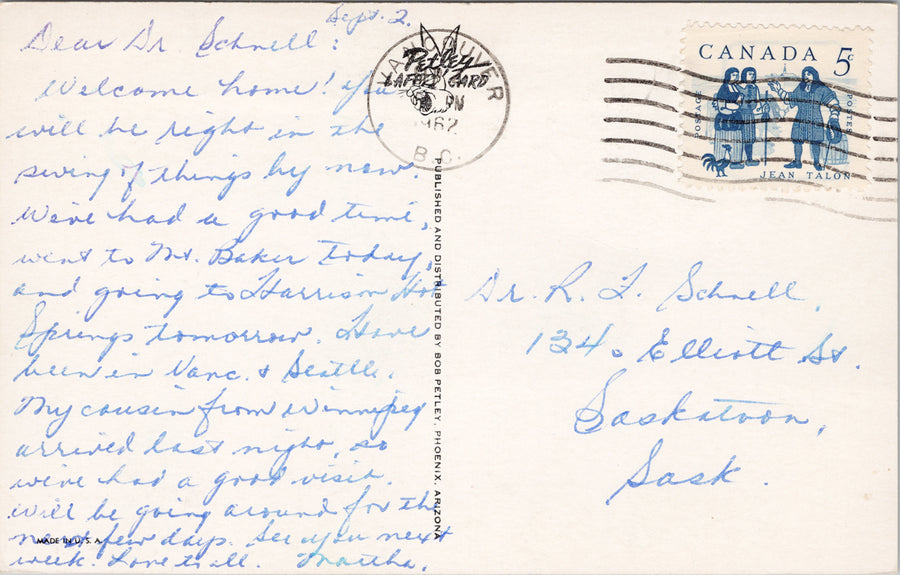 Sept. 2.
Dear Dr. Schnell:
Welcome home! You
will be right in the
swing of things by now.
We've had a good time,
went to Mt. Baker today,
and going to Harrison Hot
Springs tomorrow. Have
been in Vanc. & Seattle.
My cousin from Winnipeg
arrived last night, so
we've had a good visit.
Will be going around for the
next few days. See you next
week. Love to all. Martha.
MADE IN U.S.A.
PUBLISHED AND DISTRIBUTED BY BOB PETLEY, PHOENIX, ARIZONA
Petley
LAFF CARD
VANCOUVER
PM
1962
B.C.
CANADA 5c
POSTAGE
POSTES
JEAN TALON
Dr. R. F. Schnell,
134 Elliott St.
Saskatoon,
Sask.